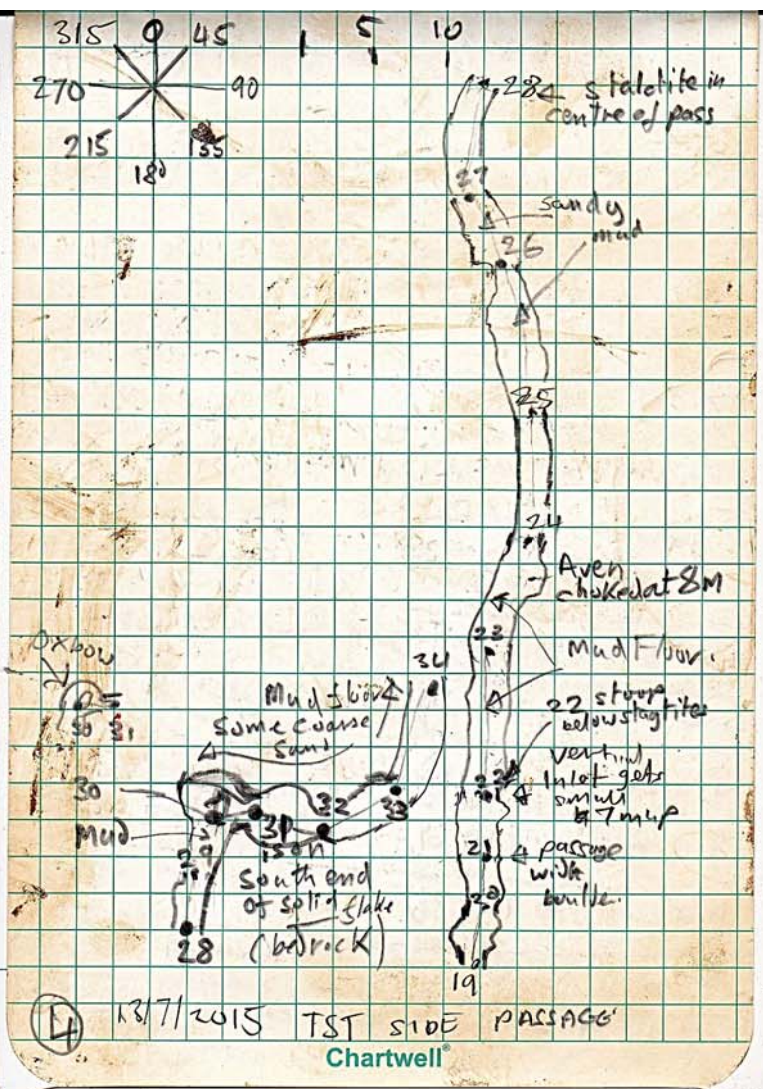 315 0 45
270 90
215 135
180
1 5 10
28 stalotite in
centre of pass
27
sandy
mud
26
25
24
Aven
choked at 8M
23
Mud Floor.
22 stoop
below stagtites
22
vertical
Inlet gets
small
7m up
21
passage
with
boulde.
20
19
Oxbow
30 31
34
Mud floor
Some coarse
Sand
30
32
33
31
Mud
29
is on
South end
of solid flake
(bedrock)
28
4 13/7/2015 TST SIDE PASSAGE
Chartwell®